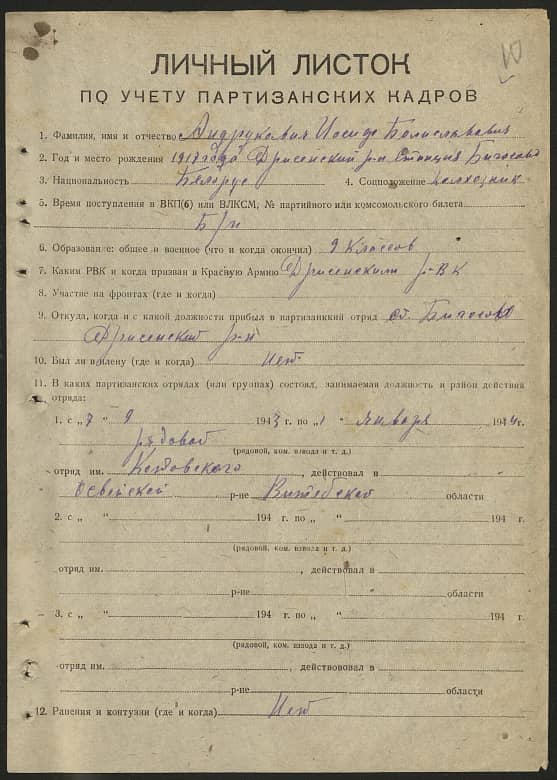 10
ЛИЧНЫЙ ЛИСТОК
ПО УЧЕТУ ПАРТИЗАНСКИХ КАДРОВ
1. Фамилия, имя и отчество Андрукович Иосиф Болиславович
2. Год и место рождения 1917 года Дрисенский р-н Станция Бигосово
3. Национальность Белорус 4. Соцположение колхозник
5. Время поступления в ВКП(б) или ВЛКСМ, № партийного или комсомольского билета
Б/п
6. Образование: общее и военное (что и когда окончил) 9 классов
7. Каким РВК и когда призван в Красную Армию Дрисенским р-ВК
8. Участие на фронтах (где и когда)
9. Откуда, когда и с какой должности прибыл в партизанский отряд ст. Бигосово
Дрисенский р-н
10. Был ли в плену (где и когда) Нет
11. В каких партизанских отрядах (или группах) состоял, занимаемая должность и район действия
отряда:
1. с „7 “ 9 1943 г. по „1 “ января 1944 г.
рядовой
(рядовой, ком. взвода и т. д.)
отряд им. Котовского, действовал в
Освейской р-не Витебской области
2. с „ “ 194 г. по „ “ 194 г.
(рядовой, ком. взвода и т. д.)
отряд им. , действовал в
р-не области
3. с „ “ 194 г. по „ “ 194 г.
(рядовой, ком. взвода и т. д.)
отряд им. , действововал в
р-не области
12. Ранения и контузии (где и когда) Нет